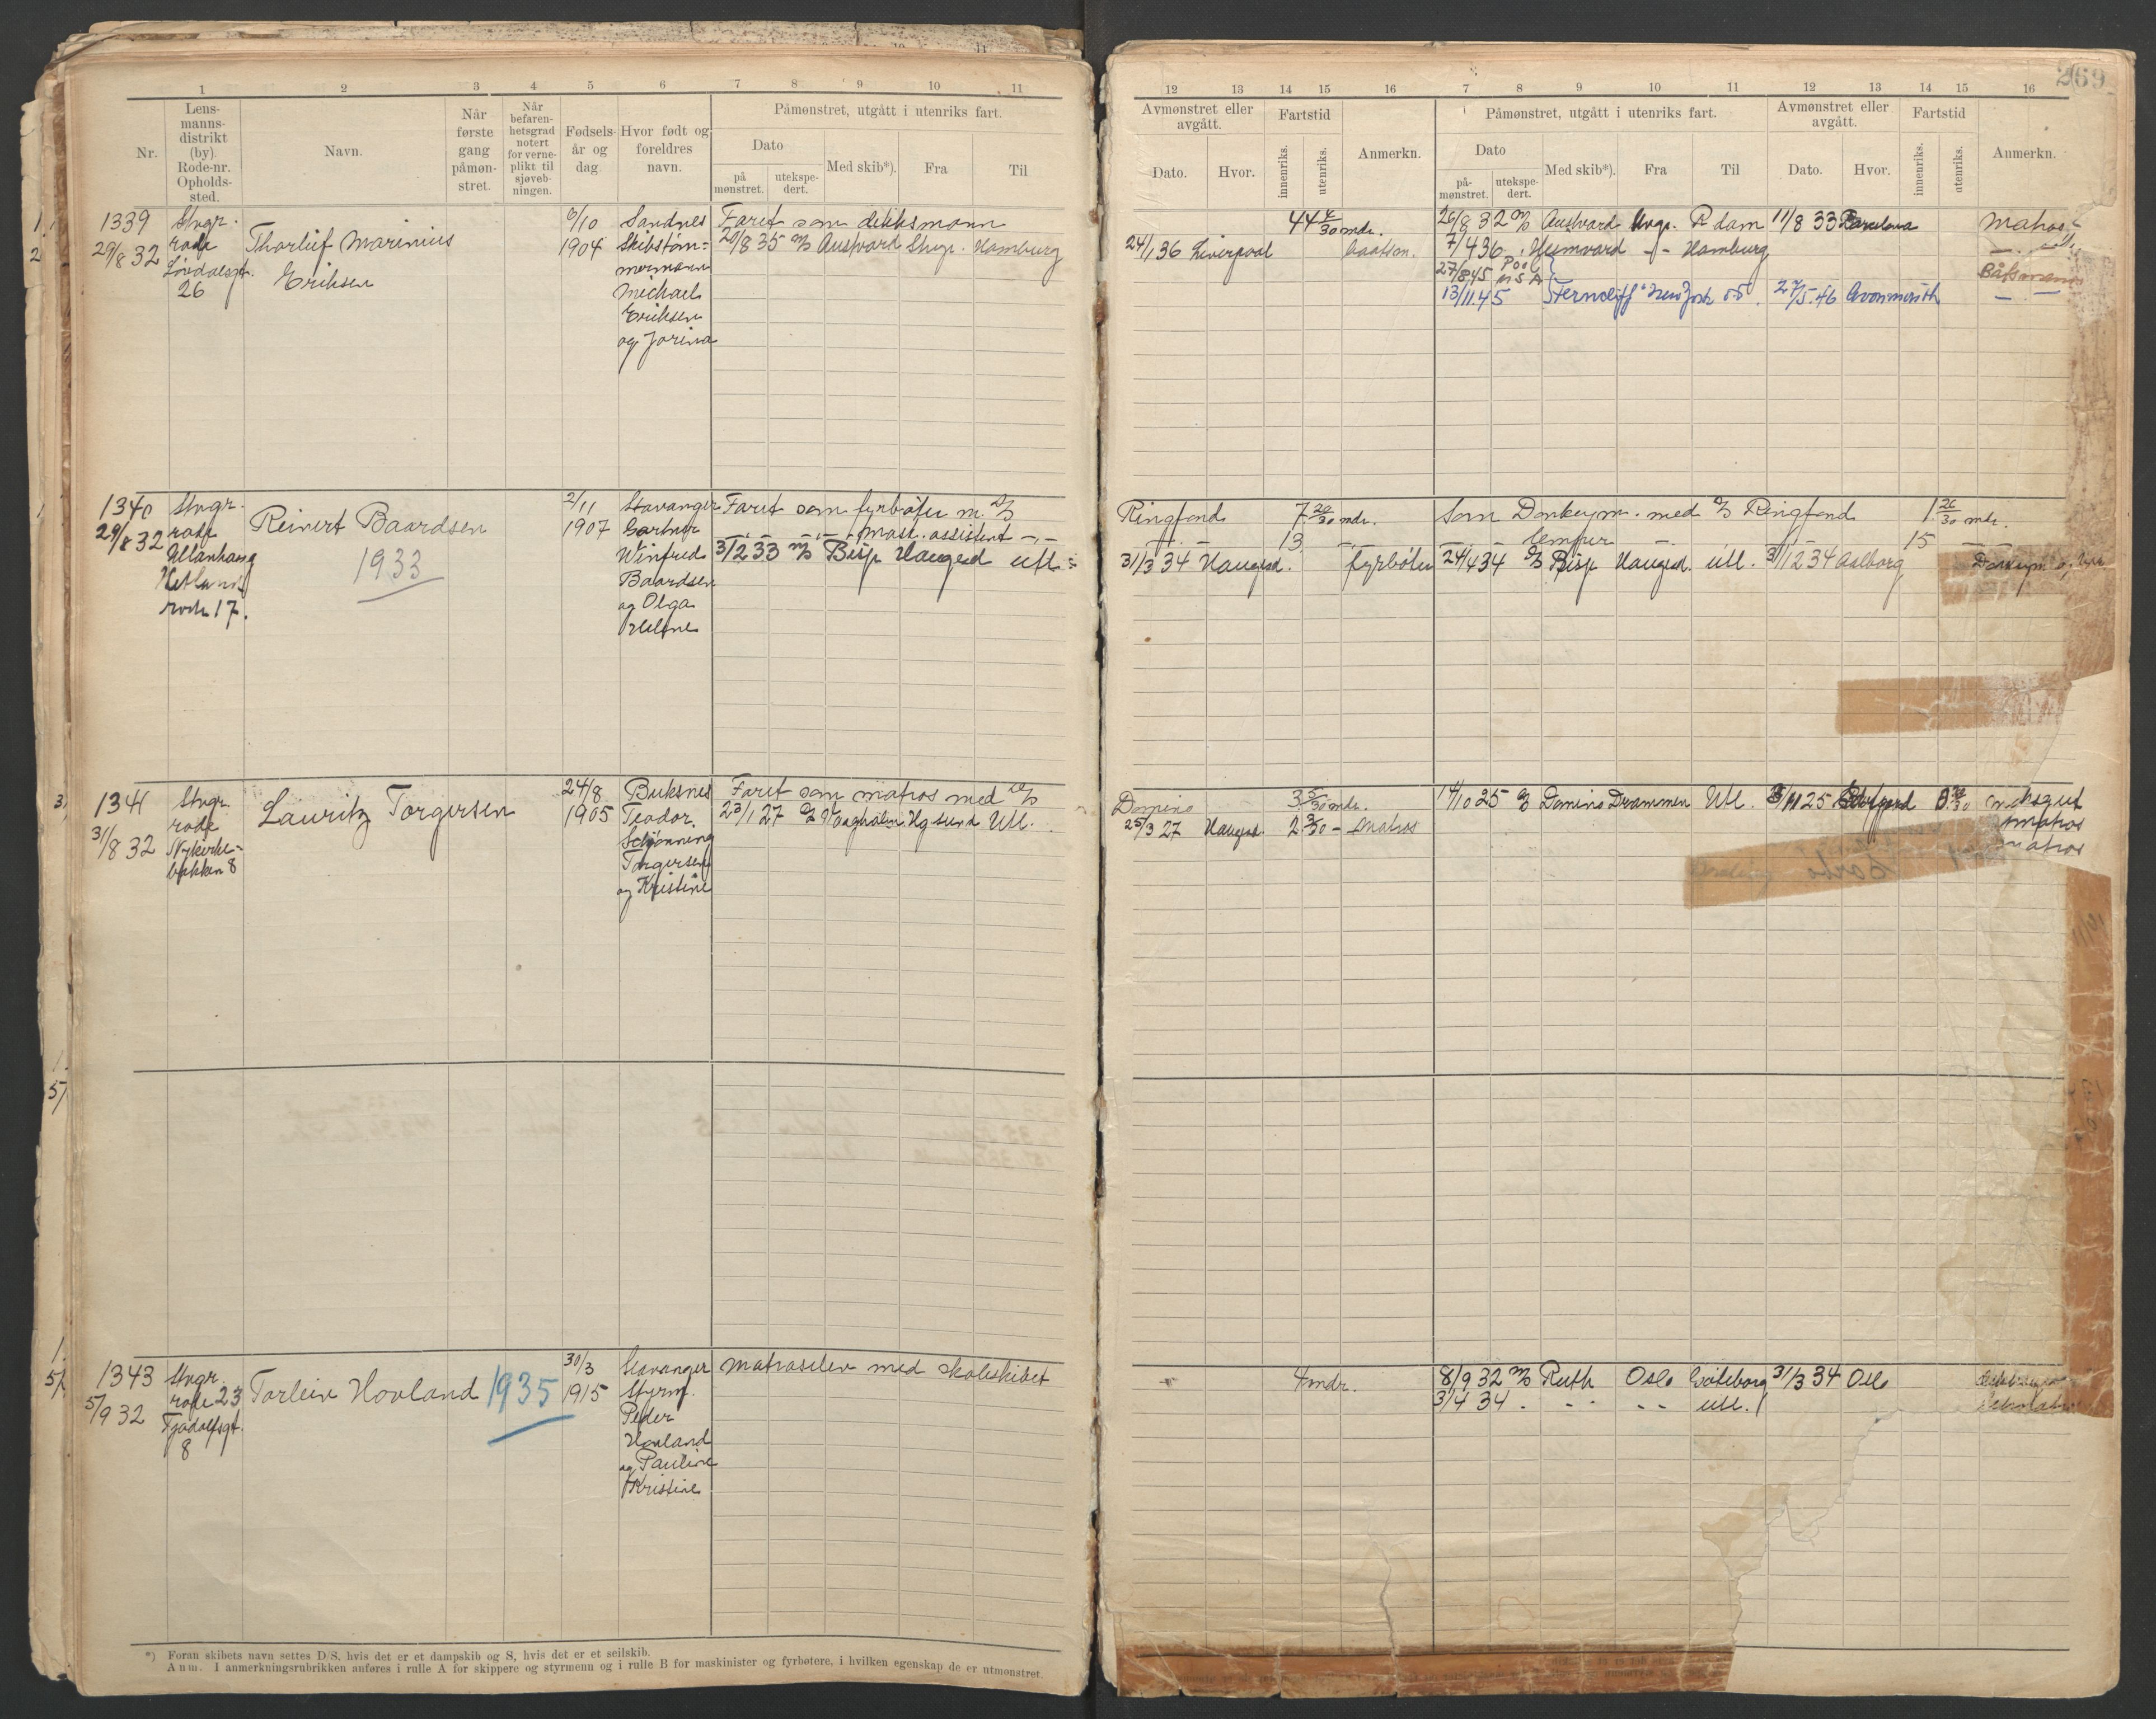 269
1 2 3 4 5 6 7 8 9 10 11
Nr.
Lens-
manns-
distrikt
(by).
Rode-nr.
Opholds-
sted.
Navn.
Når
første
gang
påmøn-
stret.
Når
befaren-
hetsgrad
notert
for verne-
plikt til
sjøveb-
ningen.
Fødsels-
år og
dag.
Hvor født og
foreldres
navn.
Påmønstret, utgått i utenriks fart.
Dato
på
mønstret.
utekspe-
dert.
Med skib*).
Fra
Til
12 13 14 15 16 7 8 9 10 11 12 13 14 15 16
Avmønstret eller
avgått.
Dato.
Hvor.
Fartstid
innenriks.
utenriks.
Anmerkn.
Påmønstret, utgått i utenriks fart.
Dato
på-
mønstret.
utekspe-
dert.
Med skib*).
Fra
Til
Avmønstret eller
avgått.
Dato.
Hvor.
Fartstid
innenriks.
utenriks.
Anmerkn.
1339
29/8 32
Stvgr.
rode
26
Thorleif Marinius
Eriksen
6/10
1904
Sandnes
Skibstøm-
mermann
Michael
Eriksen
og Jorina
Faret som dekksmann
29/8 35 M/S Austvard Stvgr. Hamburg
44 mdr.
24/1 36 Liverpool Baatsm.
26/8 32 M/S Austvard Hvgs. R.dam 11/8 33 Barcelona Matros
7/4 36 Heimvard - - Hamburg
27/8 45 Pool USA Båtsmann
13/11.45 Ferncliff New York 27/5.46 Avonmouth
1340
29/8 32
Stvgr.
rode
Ullanhaug
Hetland
rode 17.
Reinert Baardsen
1933
2/11
1907
Stavanger
Gartner
Winfred
Baardsen
og Olga
Helene
Faret som fyrbøter m. D/S
- - - - Mask. assistent - -
3/2 33 M/S Bisp Haugesd utl.
Ringfond 7 20/30 mdr.
13
31/3 34 Haugesd. fyrbøter
Som Donkeym. med D/S Ringfond 1 26/30 mdr.
lemper 15
24/4 34 D/S Bisp Haugesd. utl. 3/12 34 Aalborg
1341
31/8 32
Stvgr.
rode
Nykirke-
bakken 8
Lauritz Torgersen
24/8
1905
Buksnes
Teodor
Schjønning
Torgersen
og Kristine
Faret som matros med D/S
23/1 27 D/S Vaagholm Hg.sund Utl.
Domino 3 5/30 mdr.
25/3 27 Haugesd. 2 3/30 - Matros
14/10 25 D/S Domino Drammen Utl.
Matros
Matros
1343
5/9 32
Stvgr.
rode 23
Tjodolfsgt.
8
Torleiv Hovland
1935
30/3
1915
Stavanger
Styrm.
Peder
Hovland
og Pauline
Kristine
Matroselev med skoleskibet
4 mdr.
8/9 32 M/S Ruth Oslo Göteborg 31/3 34 Oslo
3/4 34 . - - - - utl.
*) Foran skibets navn settes D/S, hvis det er et dampskib og S, hvis det er et seilskib.
Anm. I anmerkningsrubrikken anføres i rulle A for skippere og styrmenn og i rulle B for maskinister og fyrbøtere, i hvilken egenskap de er utmønstret.